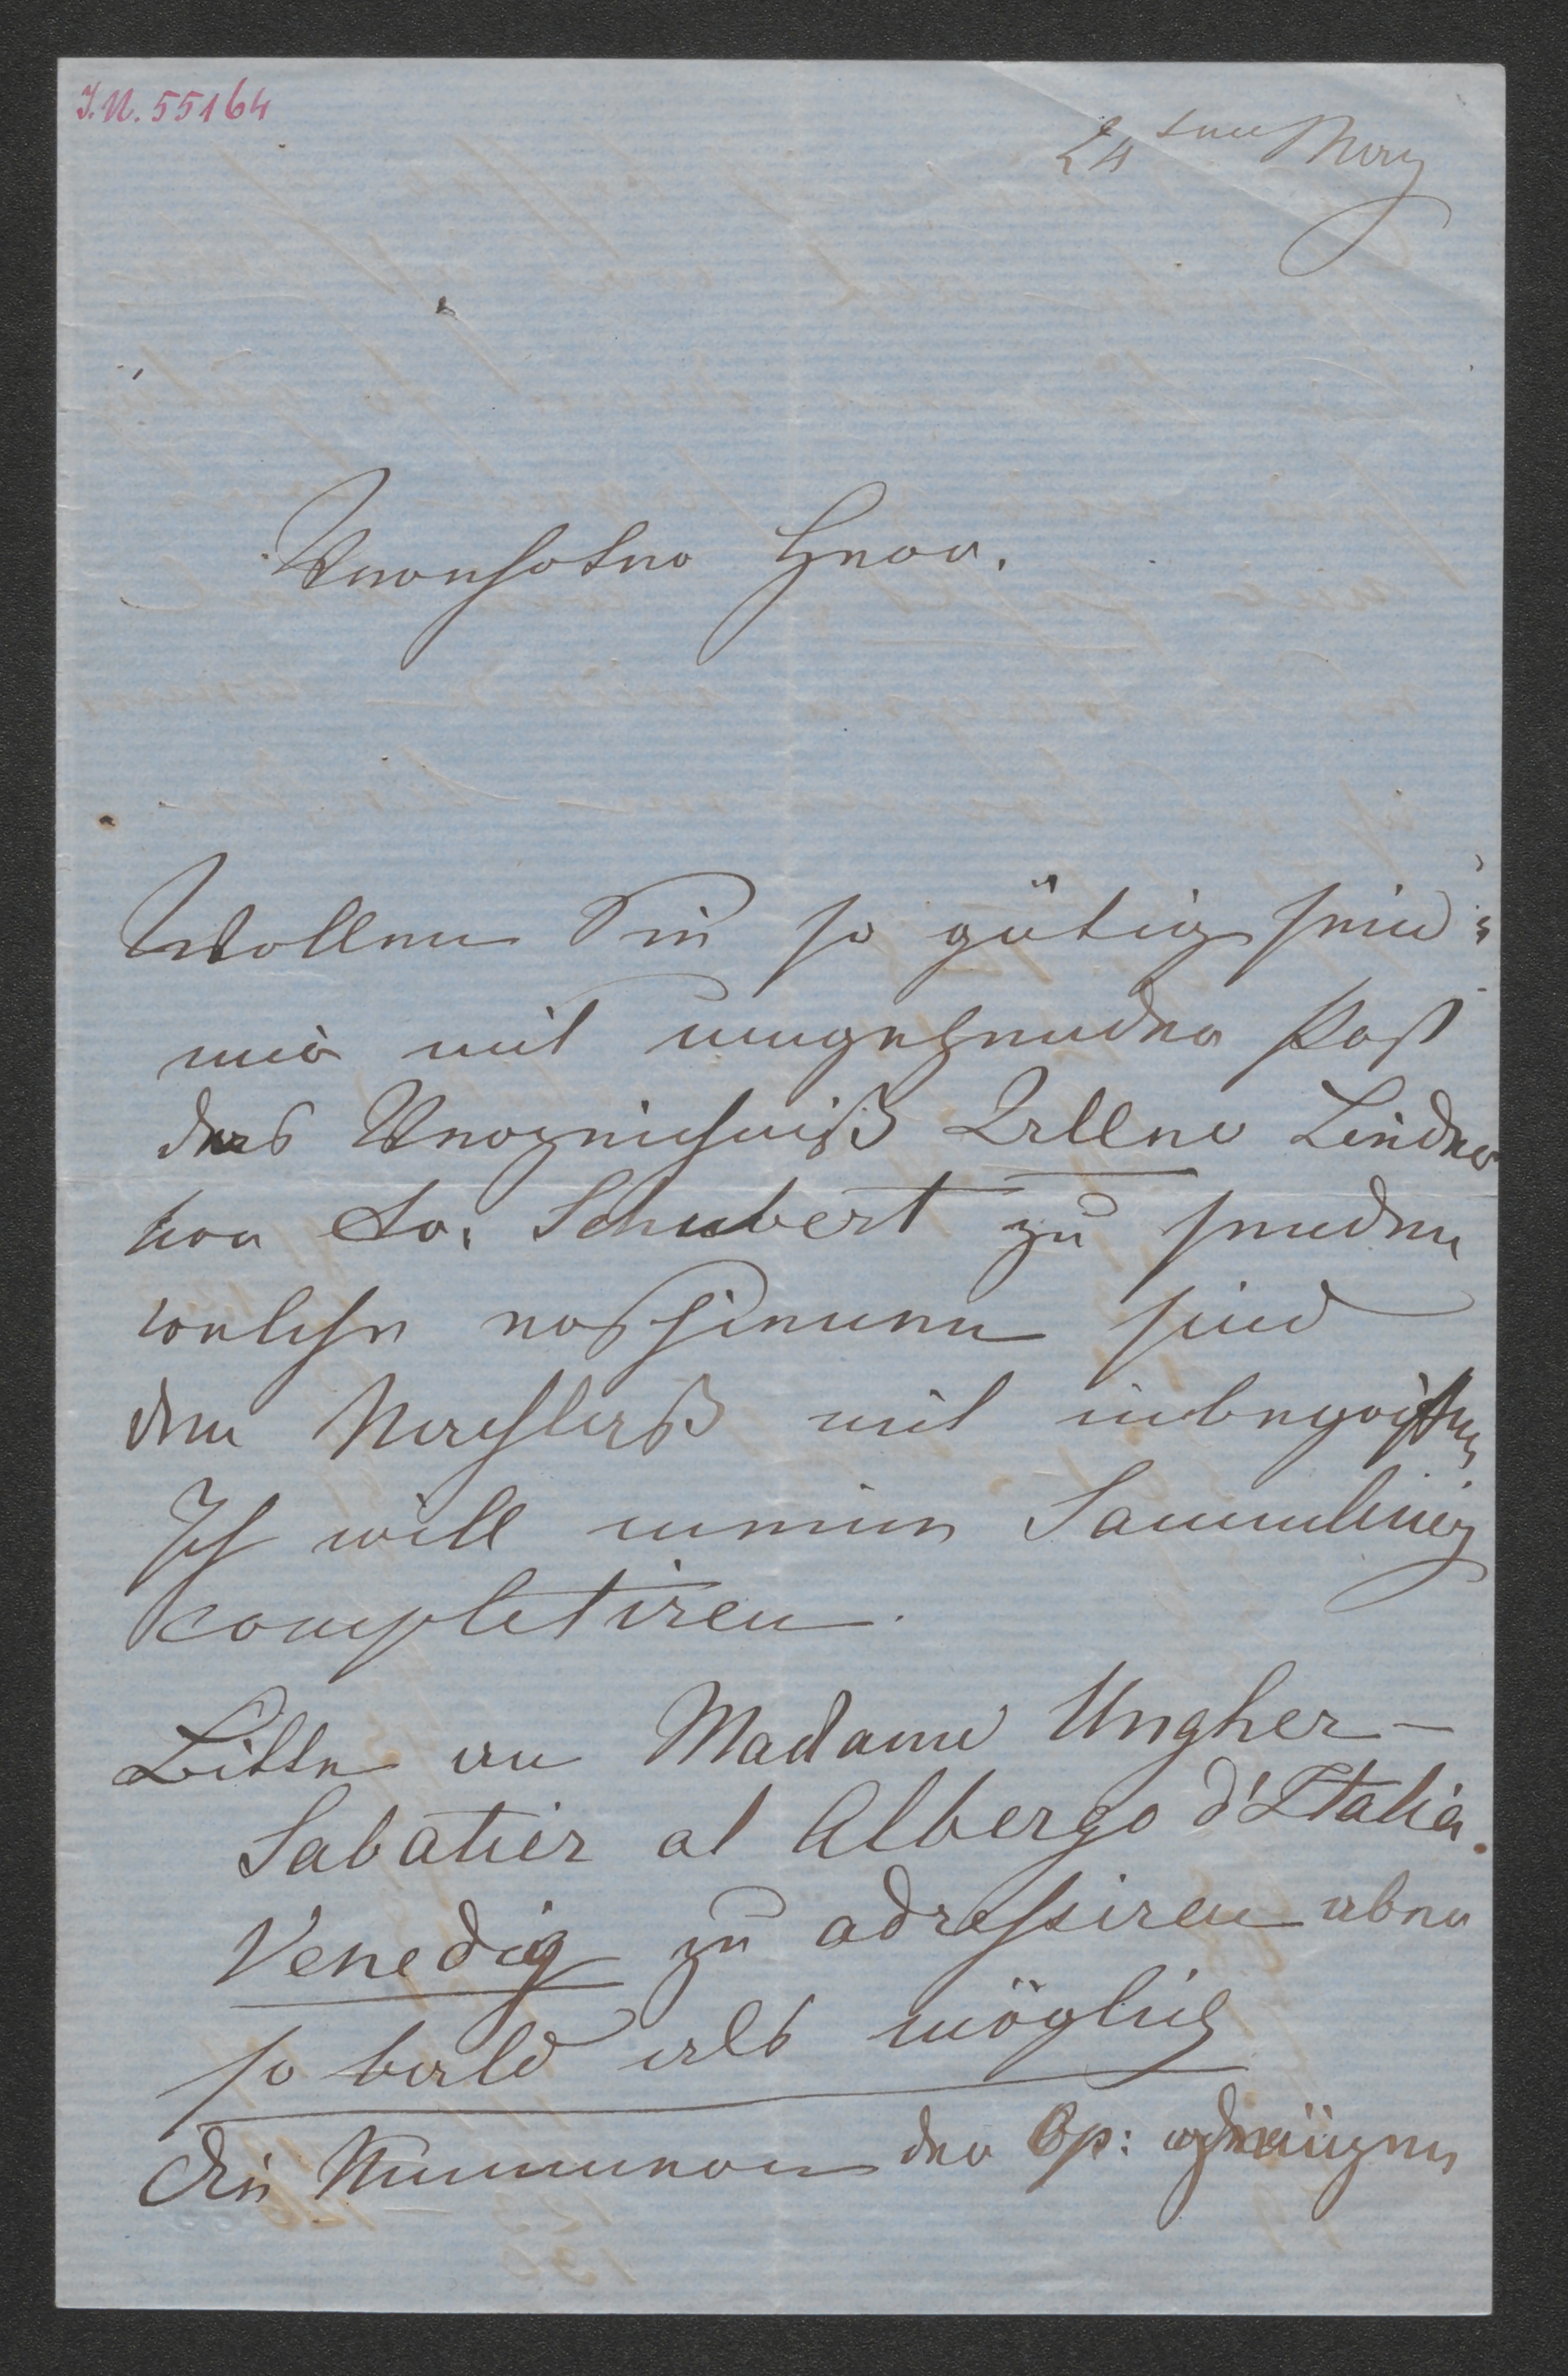 I.N. 55164
24ten May
Verehrter Herr.
Wollen Sie so gütig sein
mir mit umgehender Post
das Verzeichniß Aller Lieder
von Fr. Schubert zu senden
welche erschienen sind
den Nachlaß mit inbegriffen
Ich will meine Sammlung
completiren.
Bitte an Madame Ungher-
Sabatier al Albergo d'Italia.
Venedig zu adressiren aber
so bald als möglich
Die Nummern der Op: genügen